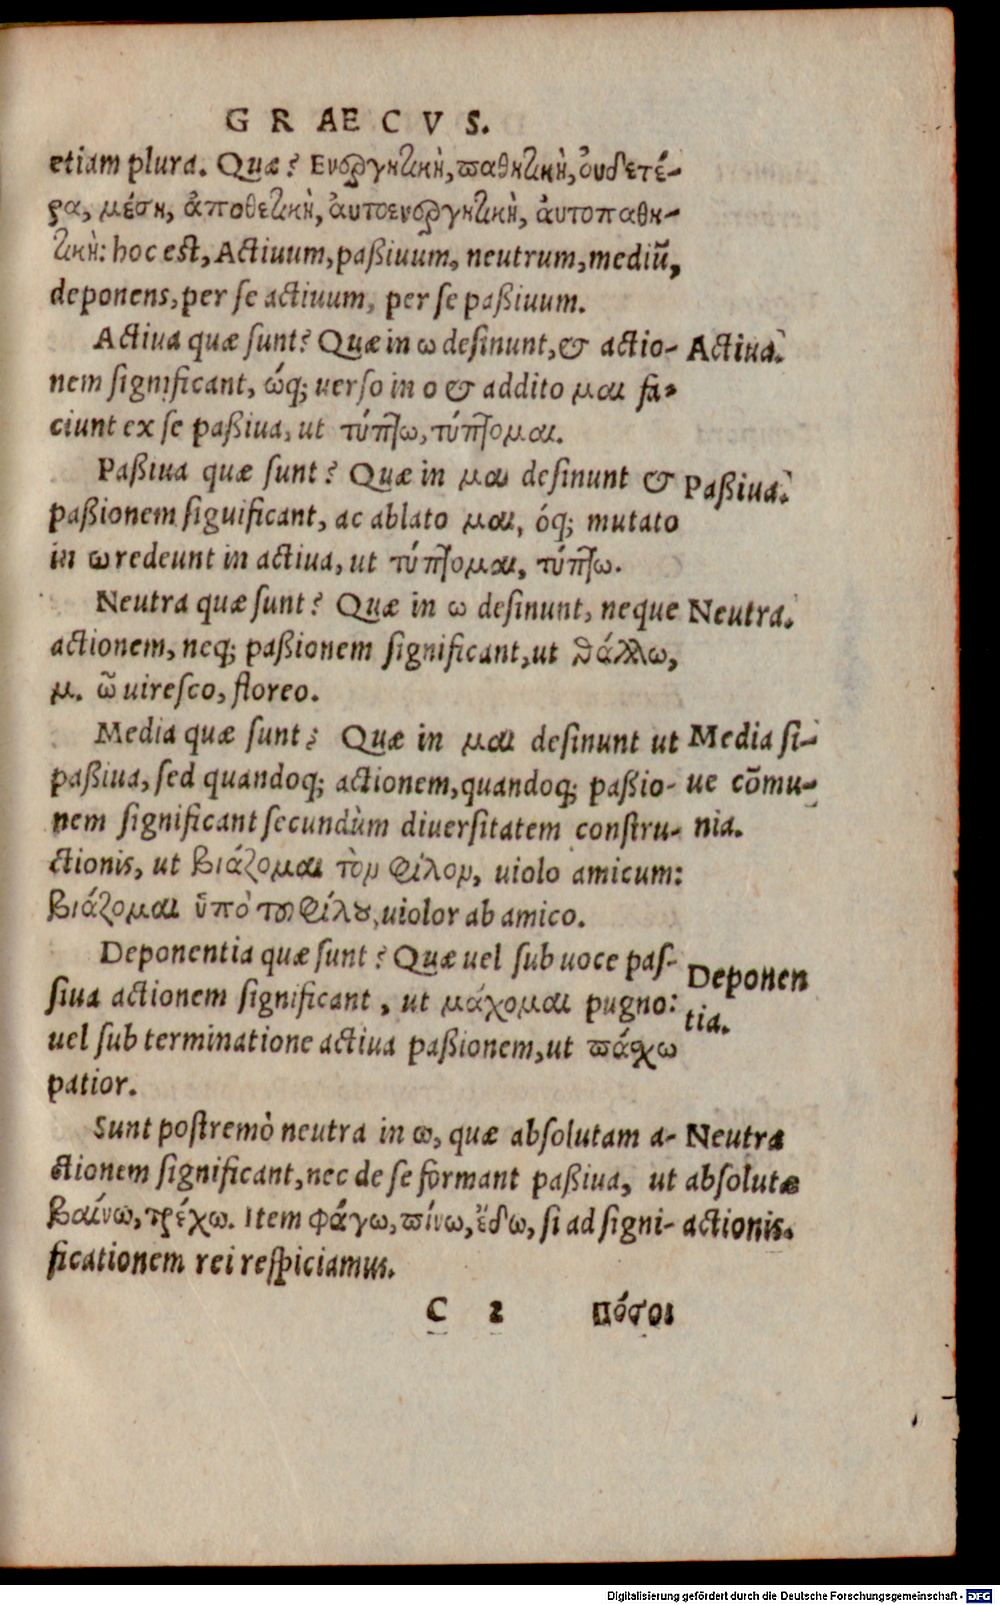 GRAECVS.
etiam plura. Quæ? Ενεργητικὴ, παθητικὴ, ὀυδετέ-
ρα, μέση, ἀποθετικὴ, ἀυτοενεργητικὴ, ἀυτοπαθη-
τικὴ: hoc est, Actiuum, paßiuum, neutrum, mediū,
deponens, per se actiuum, per se paßiuum.
Actiua quæ sunt? Quæ in ω desinunt, & actio-
Actiua.
nem significant, ώq; uerso in ο & addito μαι fa-
ciunt ex se paßiua, ut τύπτω, τύπτομαι.
Paßiua quæ sunt? Quæ in μαι desinunt &
Paßiua.
paßionem siguificant, ac ablato μαι, όq; mutato
in ω redeunt in actiua, ut τύπτομαι, τύπτω.
Neutra quæ sunt? Quæ in ω desinunt, neque
Neutra.
actionem, neq; paßionem significant, ut θάλλω,
μ. ῶ uiresco, floreo.
Media quæ sunt? Quæ in μαι desinunt ut
Media si-
paßiua, sed quandoq; actionem, quandoq; paßio-
ue cōmu-
nem significant secundùm diuersitatem constru-
nia.
ctionis, ut βιάζομαι τὸν φίλον, uiolo amicum:
βιάζομαι ὑπὸ τοῦ φίλου, uiolor ab amico.
Deponentia quæ sunt? Quæ uel sub uoce pas-
Deponen
siua actionem significant, ut μάχομαι pugno:
tia.
uel sub terminatione actiua paßionem, ut πάσχω
patior.
Sunt postremò neutra in ω, quæ absolutam a-
Neutra
ctionem significant, nec de se formant paßiua, ut
absolutæ
βαίνω, τρέχω. Item φάγω, πίνω, ἔδω, si ad signi-
actionis.
ficationem rei respiciamus.
C 2 Πόσοι
Digitalisierung gefördert durch die Deutsche Forschungsgemeinschaft - DFG